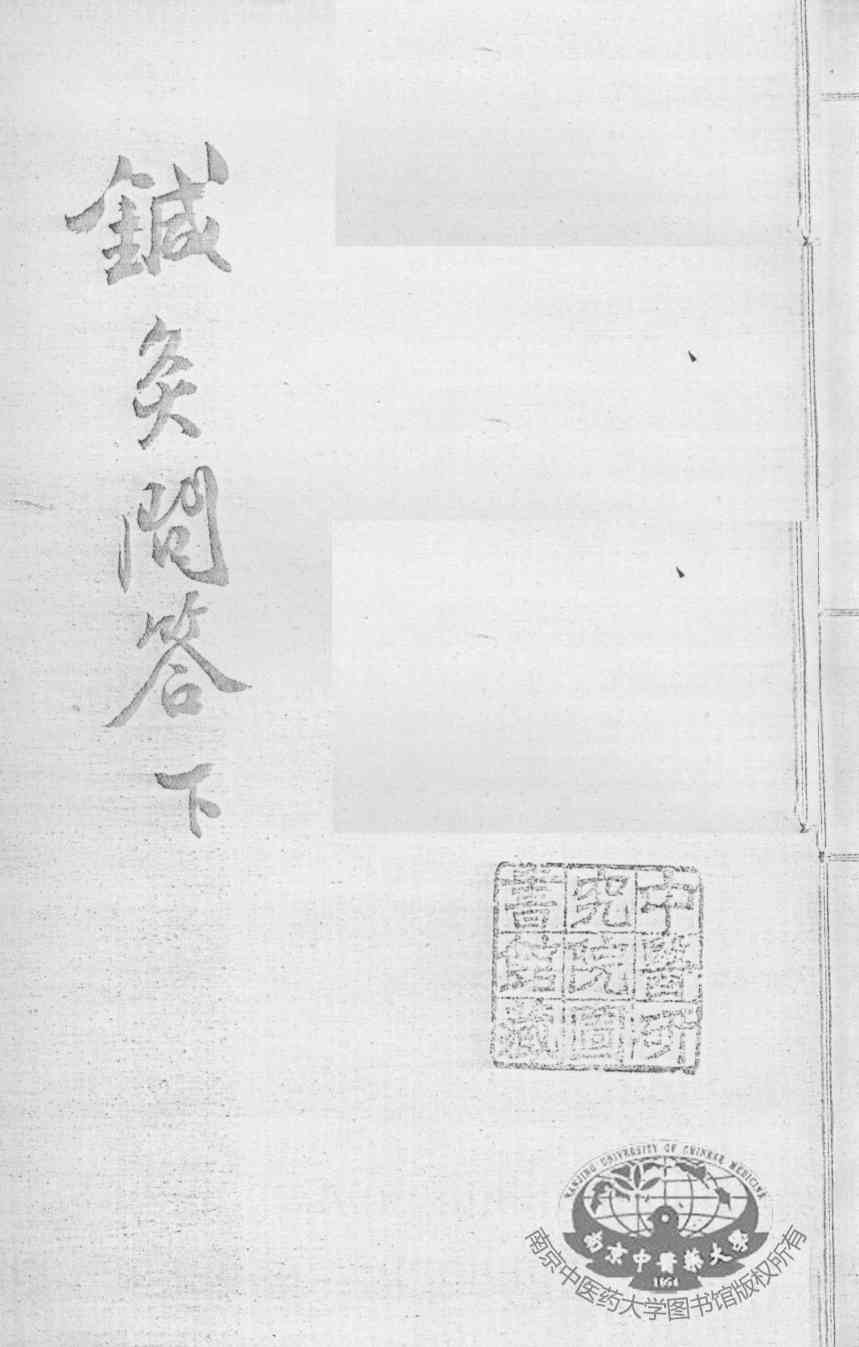 鍼灸問答下
中醫研
究院圖
書館藏
NANJING UNIVERSITY OF CHINESE MEDICINE
南京中醫藥大學
1954
南京中医药大学图书馆版权所有